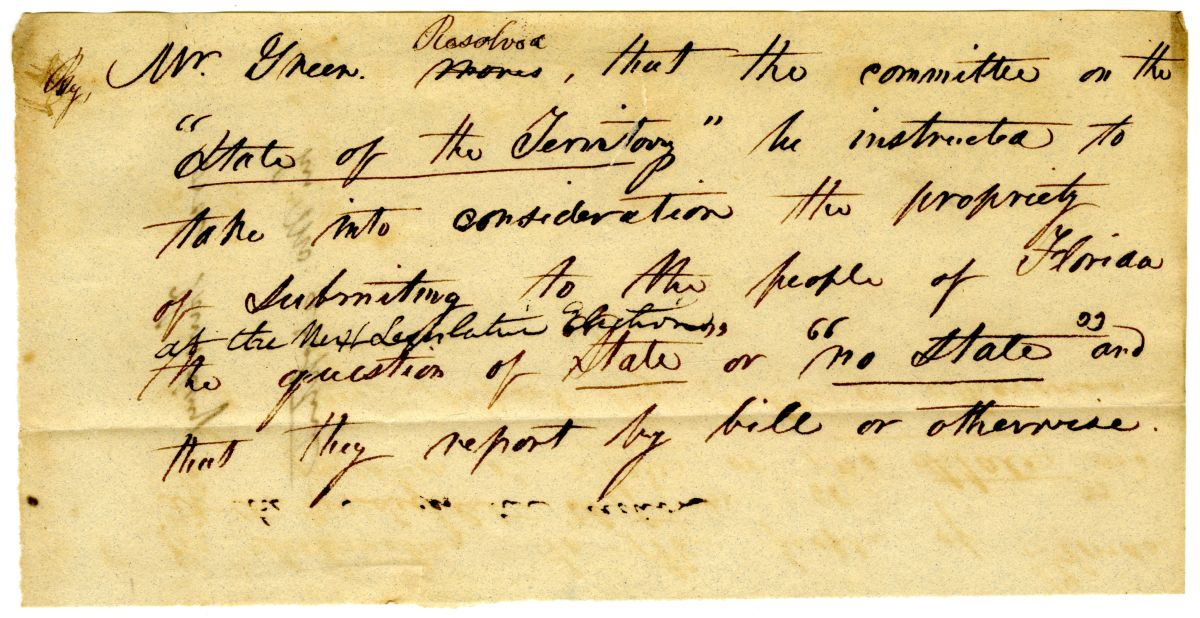 By, Mr. Green. Resolved
moves, that the committee on the
"State of the Territory" be instructed to
take into consideration the propriety
of submiting to the people of Florida
at the Next Legislative Election,
the question of State or "no State" and
that they report by bill or otherwise.